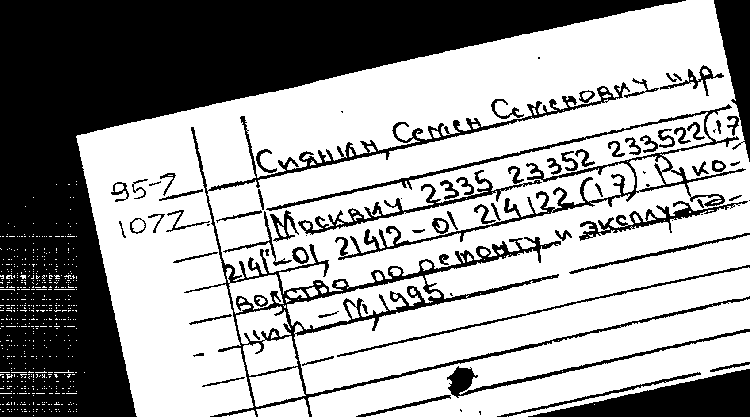 Сиянин, Семен Семенович и др.
95-7
Москвич" 2335, 23352, 233522(1,7
1077
2141-01, 21412-01, 214122 (1,7): Руко-
водство по ремонту и эксплуата-
ции. - М, 1995.